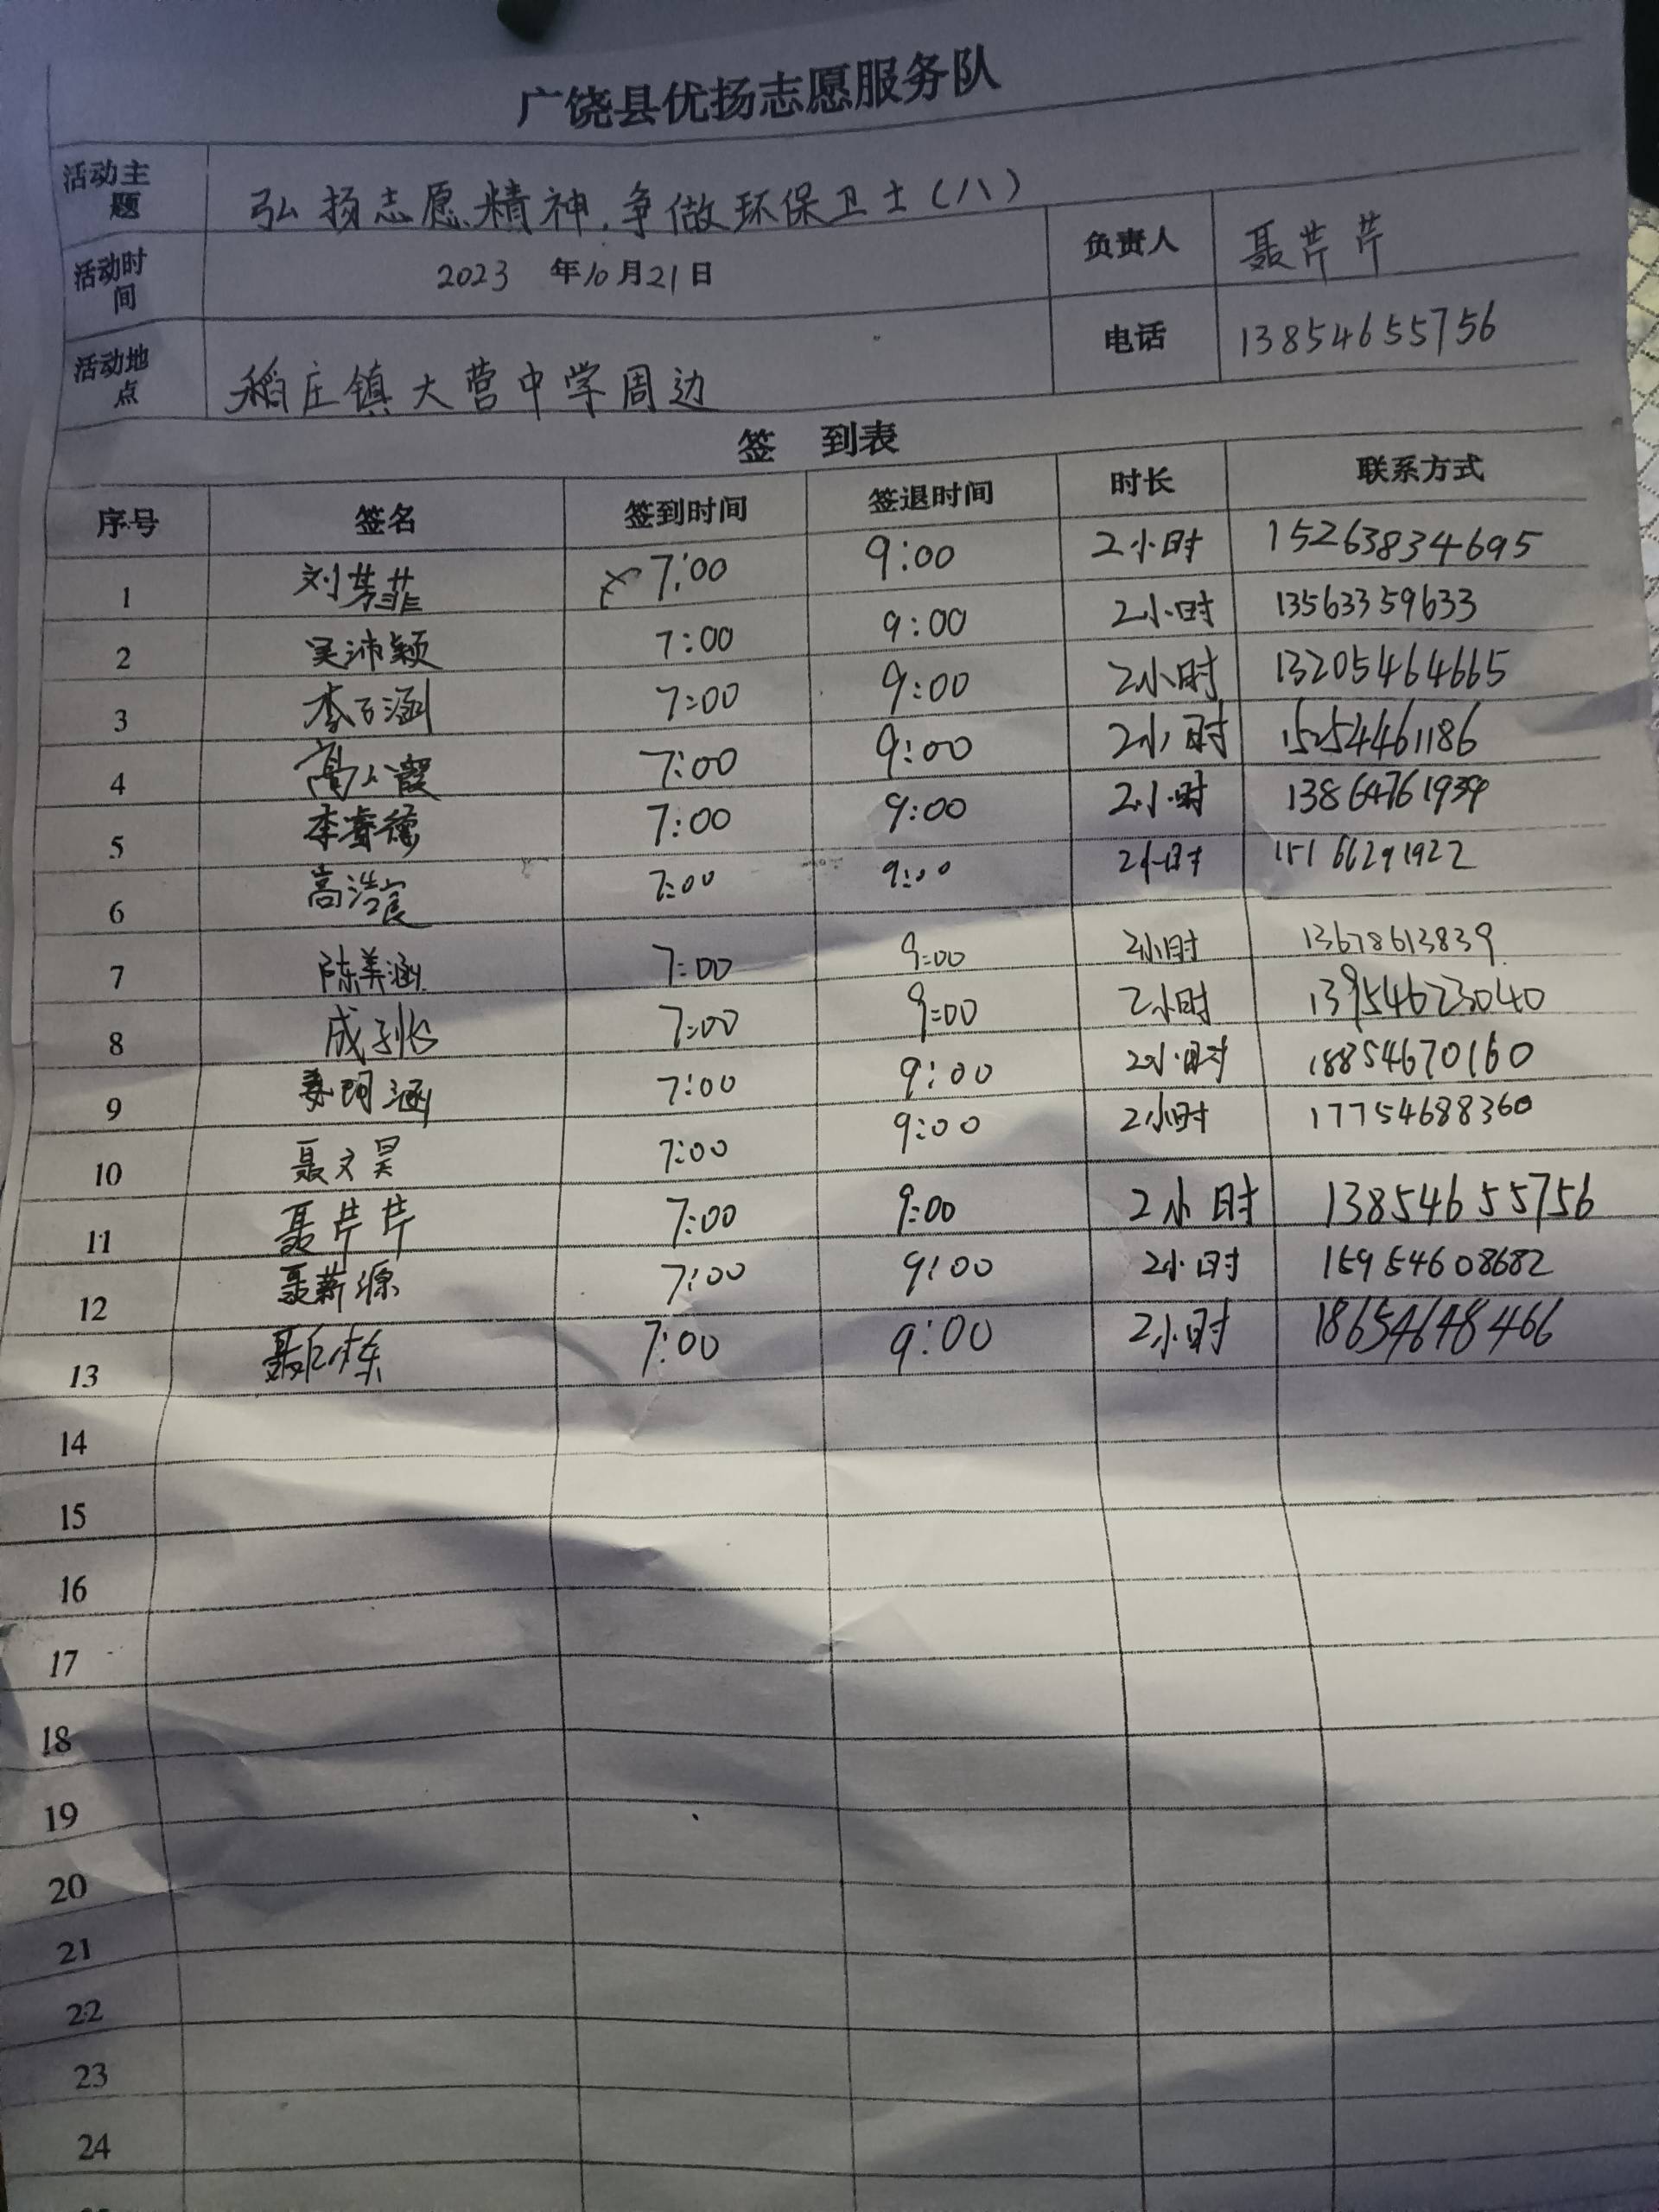 广饶县优扬志愿服务队
活动主题 弘扬志愿精神,争做环保卫士(八)
活动时间 2023 年10月21日 负责人 聂芹芹
活动地点 稻庄镇大营中学周边 电话 13854655756
签 到表
序号 签名 签到时间 签退时间 时长 联系方式
1 刘芳菲 7:00 9:00 2小时 15263834695
2 吴沛颖 7:00 9:00 2小时 13563359633
3 李百涵 7:00 9:00 2小时 13205464665
4 7:00 9:00 2小时 15254461186
5 李睿德 7:00 9:00 2小时 13864761939
6 高浩宸 7:00 9:00 2小时 15166291922
7 陈美涵 7:00 9:00 2小时 13678613839
8 7:00 9:00 2小时 13954623040
9 7:00 9:00 2小时 18854670160
10 聂文昊 7:00 9:00 2小时 17754688360
11 聂芹芹 7:00 9:00 2小时 13854655756
12 聂薪源 7:00 9:00 2小时 15954608682
13 7:00 9:00 2小时 18654648466
14
15
16
17
18
19
20
21
22
23
24